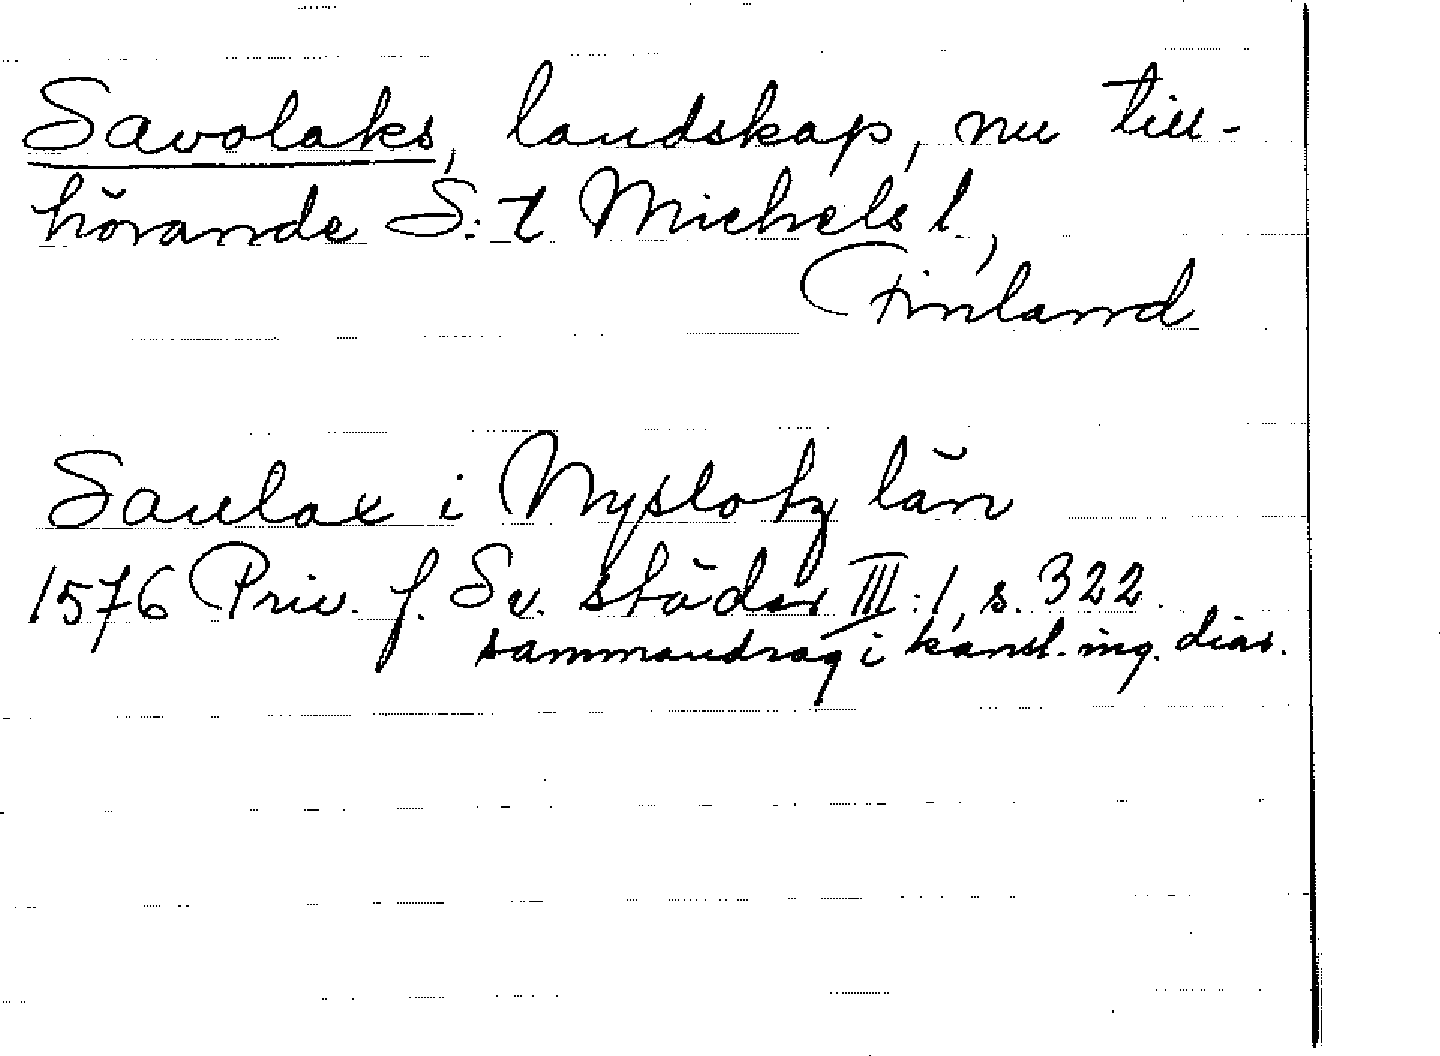 Savolaks, landskap, nu till-
hörande S:t Michels l.,
Finland
Saulax i Nyslotz län
1576 Priv. f. Sv. städer III:1, s. 322.
sammandrag i kansl. ing. diar.